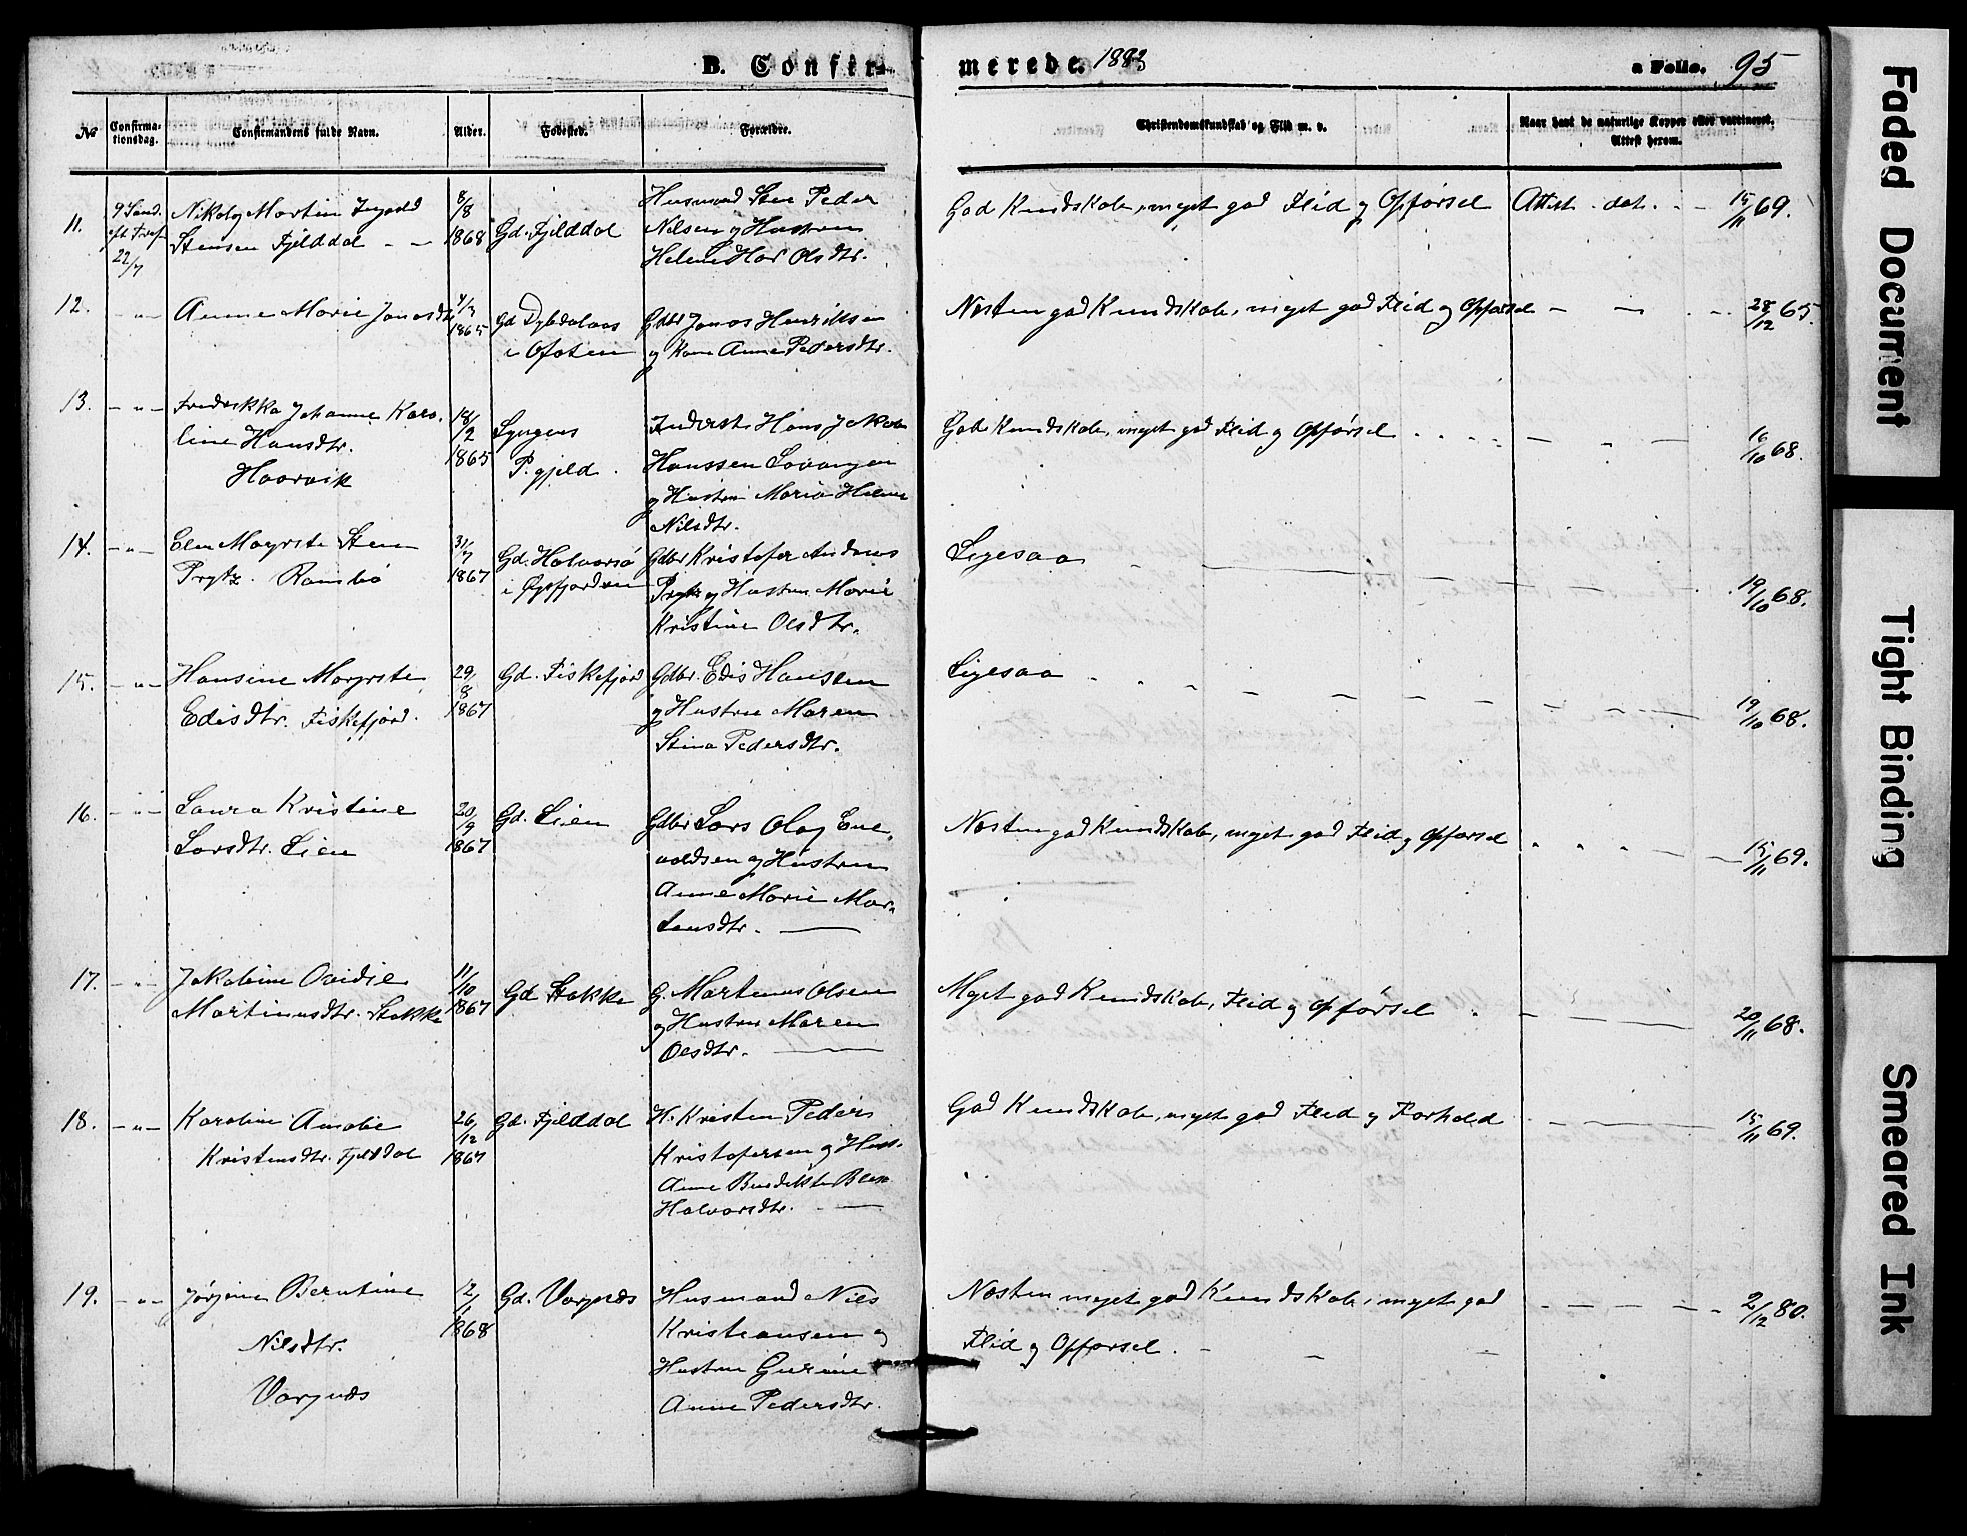 B. Confir-
merede. 1883
a Folio. 95
No
Confirma-
tionsdag.
Confirmandens fulde Navn.
Alder.
Fødested.
Forældre.
Christendomskundskab og Flid m. v.
Naar havt de naturlige Kopper eller vaccineret,
Attest herom.
11. 9 Sønd. eft Tref 22/7
Nikolay Martin
Stensen Fjelddal
8/8 1868
Gd. Fjelddal
Husmand Sten Peder
Nilsen og Hustru
Helene Olsdtr.
God Kundskab, meget god Flid og Opførsel Attest dat. 15/11 69.
12. - " -
Anne Marie Jonasdtr
1865
i Ofoten
Gdbr Jonas Henriksen
og Kone Anne Pedersdtr.
Næsten god Kundskab, meget god Flid og Opførsel 28/12 65.
13. - " -
Fredrikka Johanne Karo-
line Hansdtr.
Haarvik
18/2 1865
Lyngens
P.gjeld.
Inderst Hans Jakob
Hanssen
og Hustru Maria Helene
Nilsdtr.
God Kundskab, meget god Flid og Opførsel 16/10 68.
14. - " -
Elen Magrete Steen
Prytz. Rambø
31/7 1867
Gd. Halvarsø
i Øgsfjorden
Gdbr Kristofer Andreas
Prytz og Hustru Marie
Kristine Olsdtr.
Ligesaa
19/10 68.
15. - " -
Hansine Magrete
Edisdtr. Fiskefjord.
29/8 1867
Gd. Fiskefjord
Gdbr. Edis Hansen
og Hustru Maren
Stina Pedersdtr.
Ligesaa
19/10 68.
16. - " -
Laura Kristine
Larsdtr. Lien
20/9 1867
Gd. Lien
Gdbr Lars Olag Ene-
voldsen og Hustru
Anne Marie Mor-
tensdtr.
Næsten god Kundskab, meget god Flid og Opførsel
15/11 69.
17. - " -
Jakobine Ovidie
Martinusdtr. Stokke
11/10 1867
Gd Stokke
G. Martinus Olsen
og Hustru Maren
Olsdtr.
Meget god Kundskab, Flid og Opførsel
20/11 68.
18. - " -
Karoline Amalie
Kristensdtr. Fjelddal
26/12 1867
Gd. Fjelddal
H. Kristen Peder
Kristofersen og Hust.
Anne Bendikte
Halvorsdtr.
God Kundskab, meget god Flid og Forhold
15/11 69.
19. - " -
Jørgine Berntine
Nilsdtr.
Vargnæs
12/1 1868
Gd. Vargnæs
Husmand Nils
Kristiansen og
Hustru Gurine
Anne Pedersdtr.
Næsten meget god Kundskab, meget god
Flid og Opførsel.
2/12 80.
Faded Document
Tight Binding
Smeared Ink